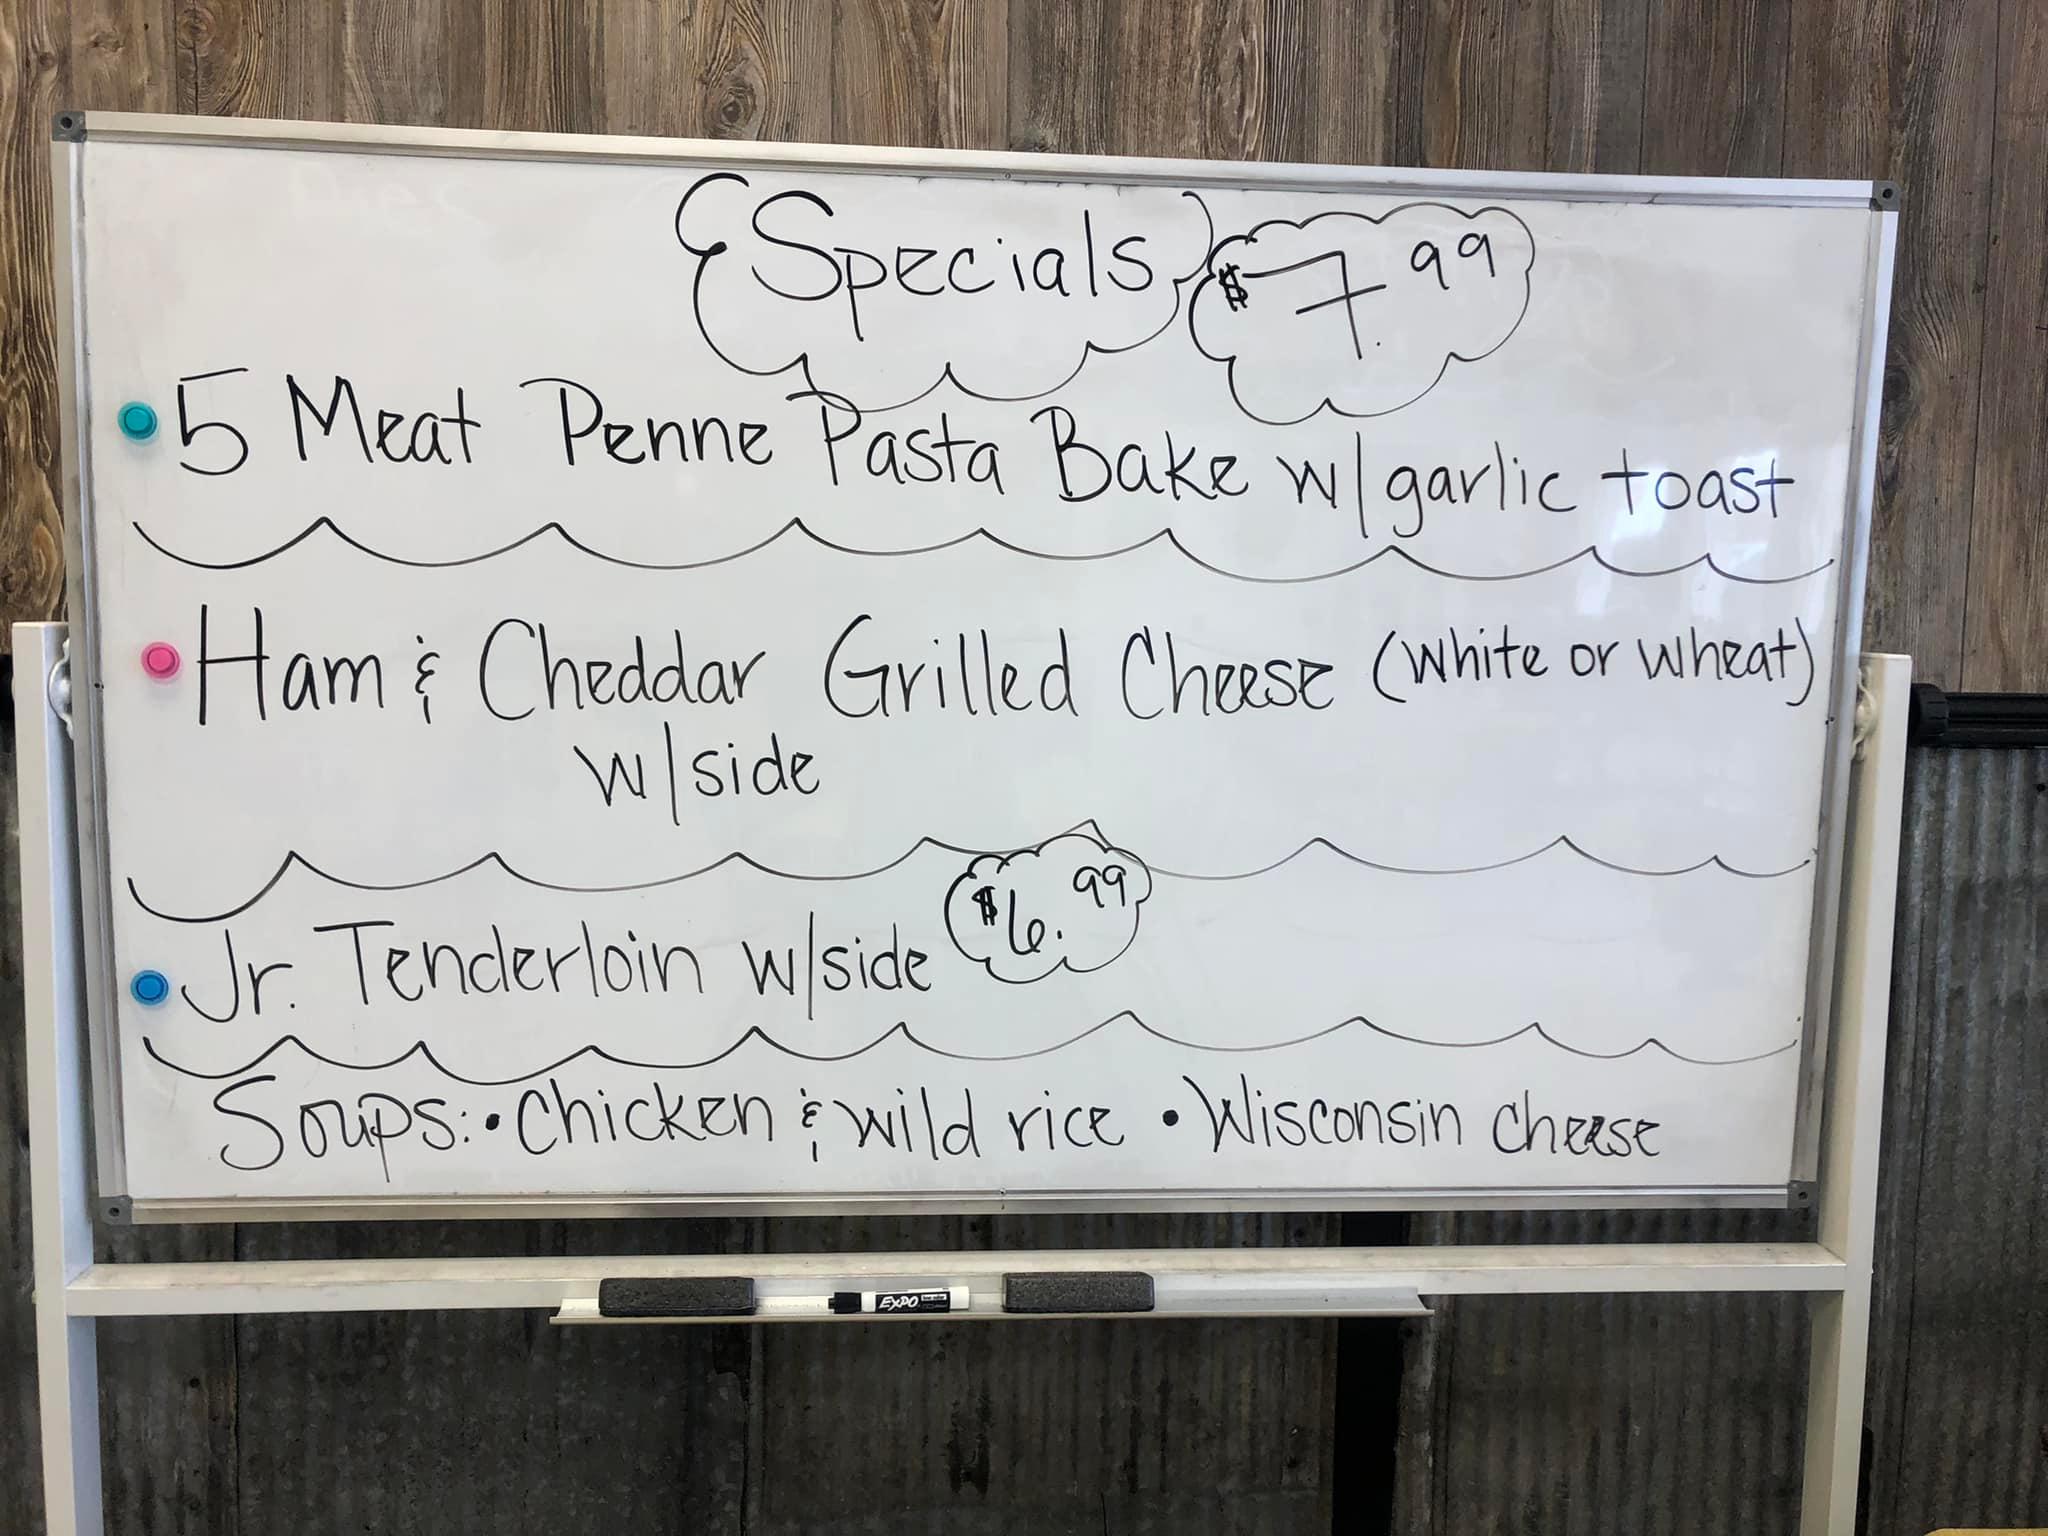 Specials $7.99
5 Meat Penne Pasta Bake w/garlic toast
Ham & Cheddar Grilled Cheese (white or wheat)
w/side
Jr. Tenderloin w/side $6.99
Soups: • Chicken & wild rice • Wisconsin cheese
EXPO